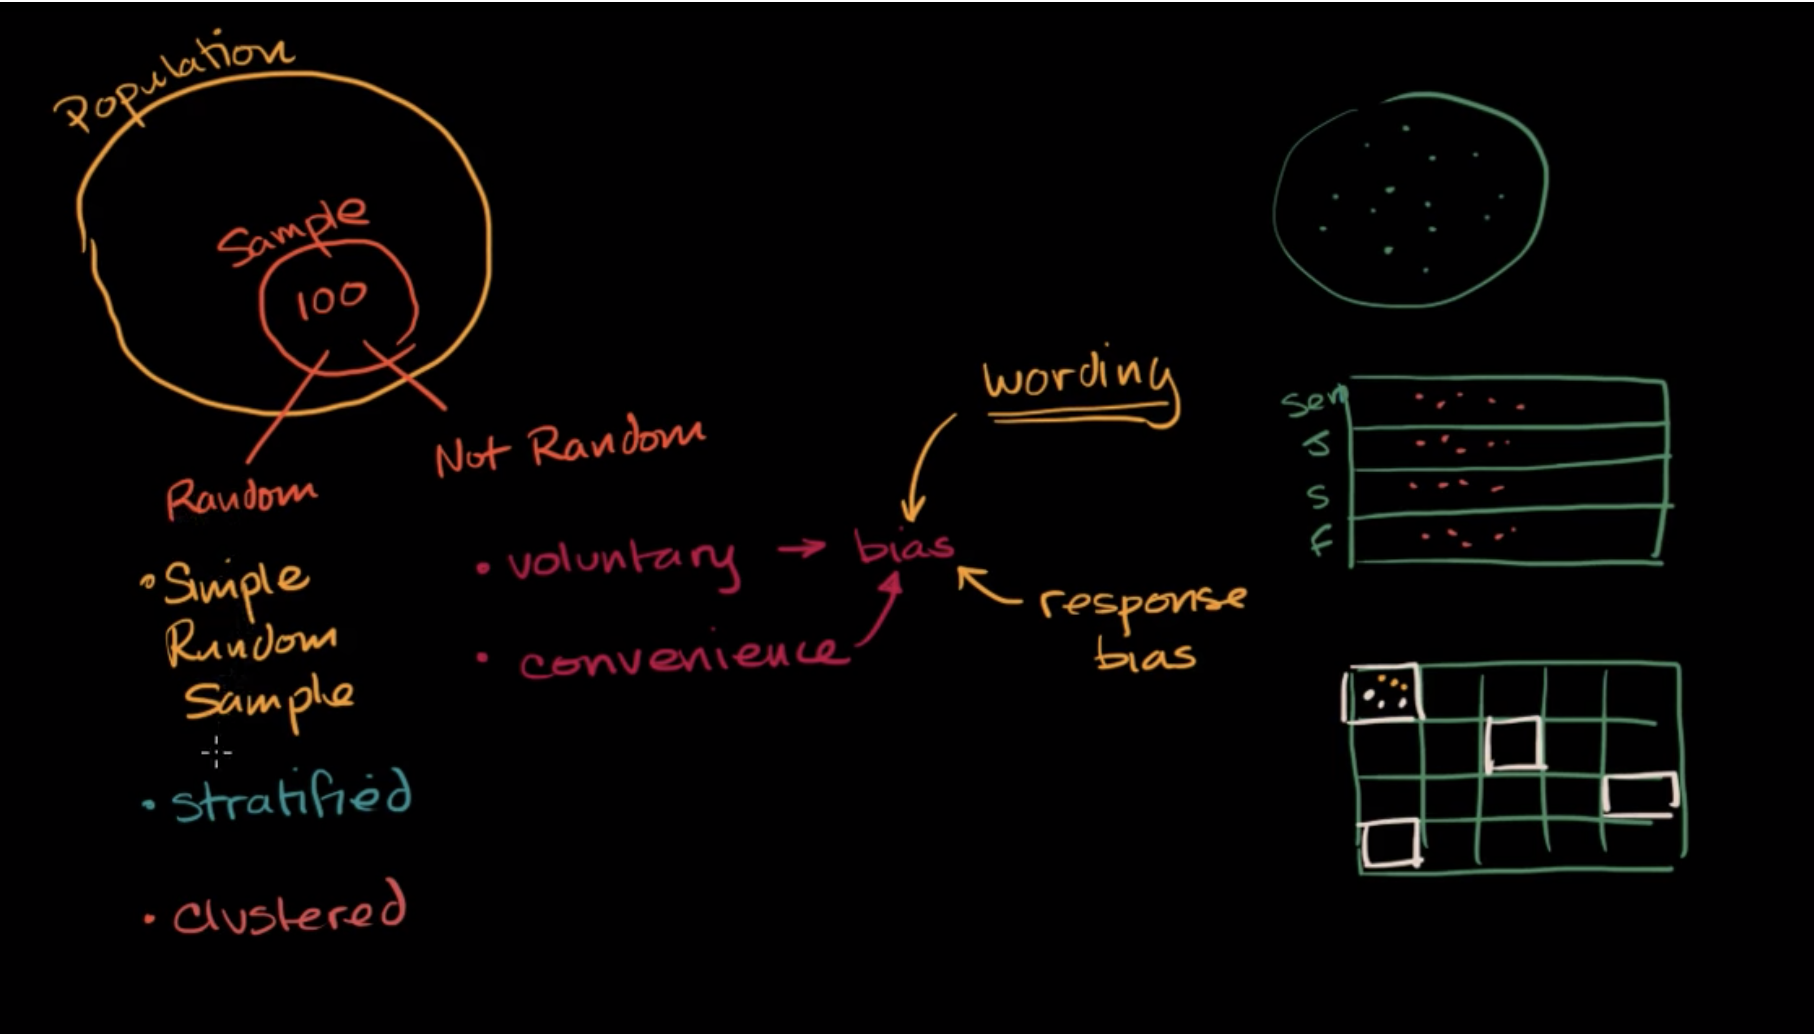 Population
Sample
100
Random
Not Random
• Simple
Random
Sample
• stratified
• clustered
• voluntary → bias
• convenience
wording
response
bias
Sen
J
S
F